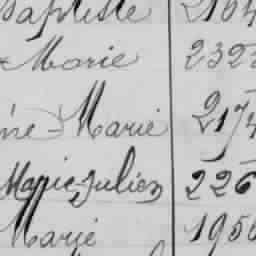 Baptiste 2164
Marie 232
Marie 2174
Marie-Julien 226
Marie 1950